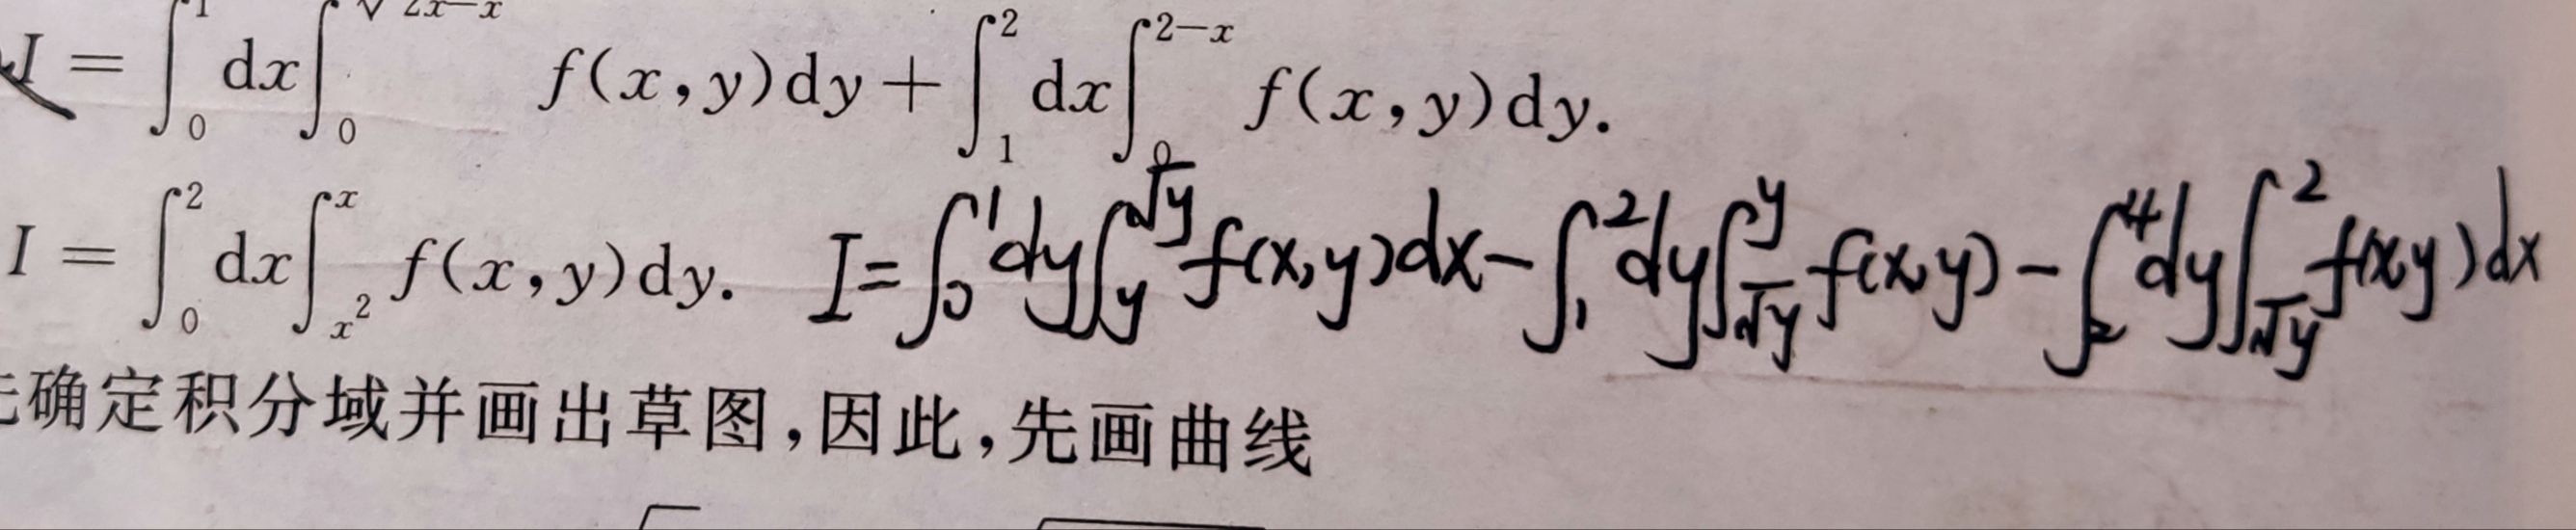 I = ∫₀¹ dx ∫₀^√(2x−x) f(x,y)dy + ∫₁² dx ∫₀^(2−x) f(x,y)dy.
I = ∫₀² dx ∫_(x²)^x f(x,y)dy. I = ∫₀¹ dy ∫_y^(√y) f(x,y)dx − ∫₁² dy ∫_(√y)^y f(x,y) − ∫₂⁴ dy ∫_(√y)² f(x,y)dx
确定积分域并画出草图,因此,先画曲线